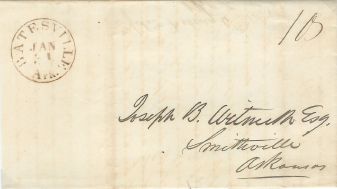 BATESVILLE
JAN
21
Ark.
10
Joseph B. Witmuth Esq.
Smithville
Arkansas